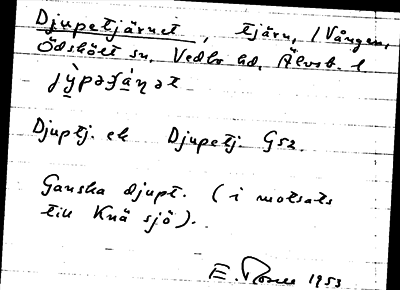 Djupetjärnet, tjärn, i Vången,
Ödskölt sn, Vedbo hd, Älvsb. l
Djuptj. ek Djupetj. G52.
Ganska djupt. (i motsats
till Knä sjö).
E. 1953